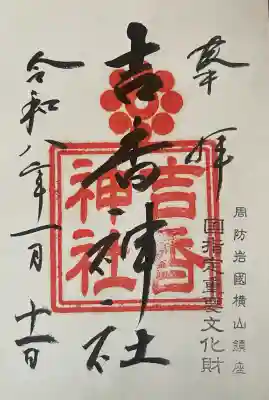 奉拝
周防岩國横山鎮座
國指定重要文化財
吉香神社
吉香
神社
令和八年一月十一日